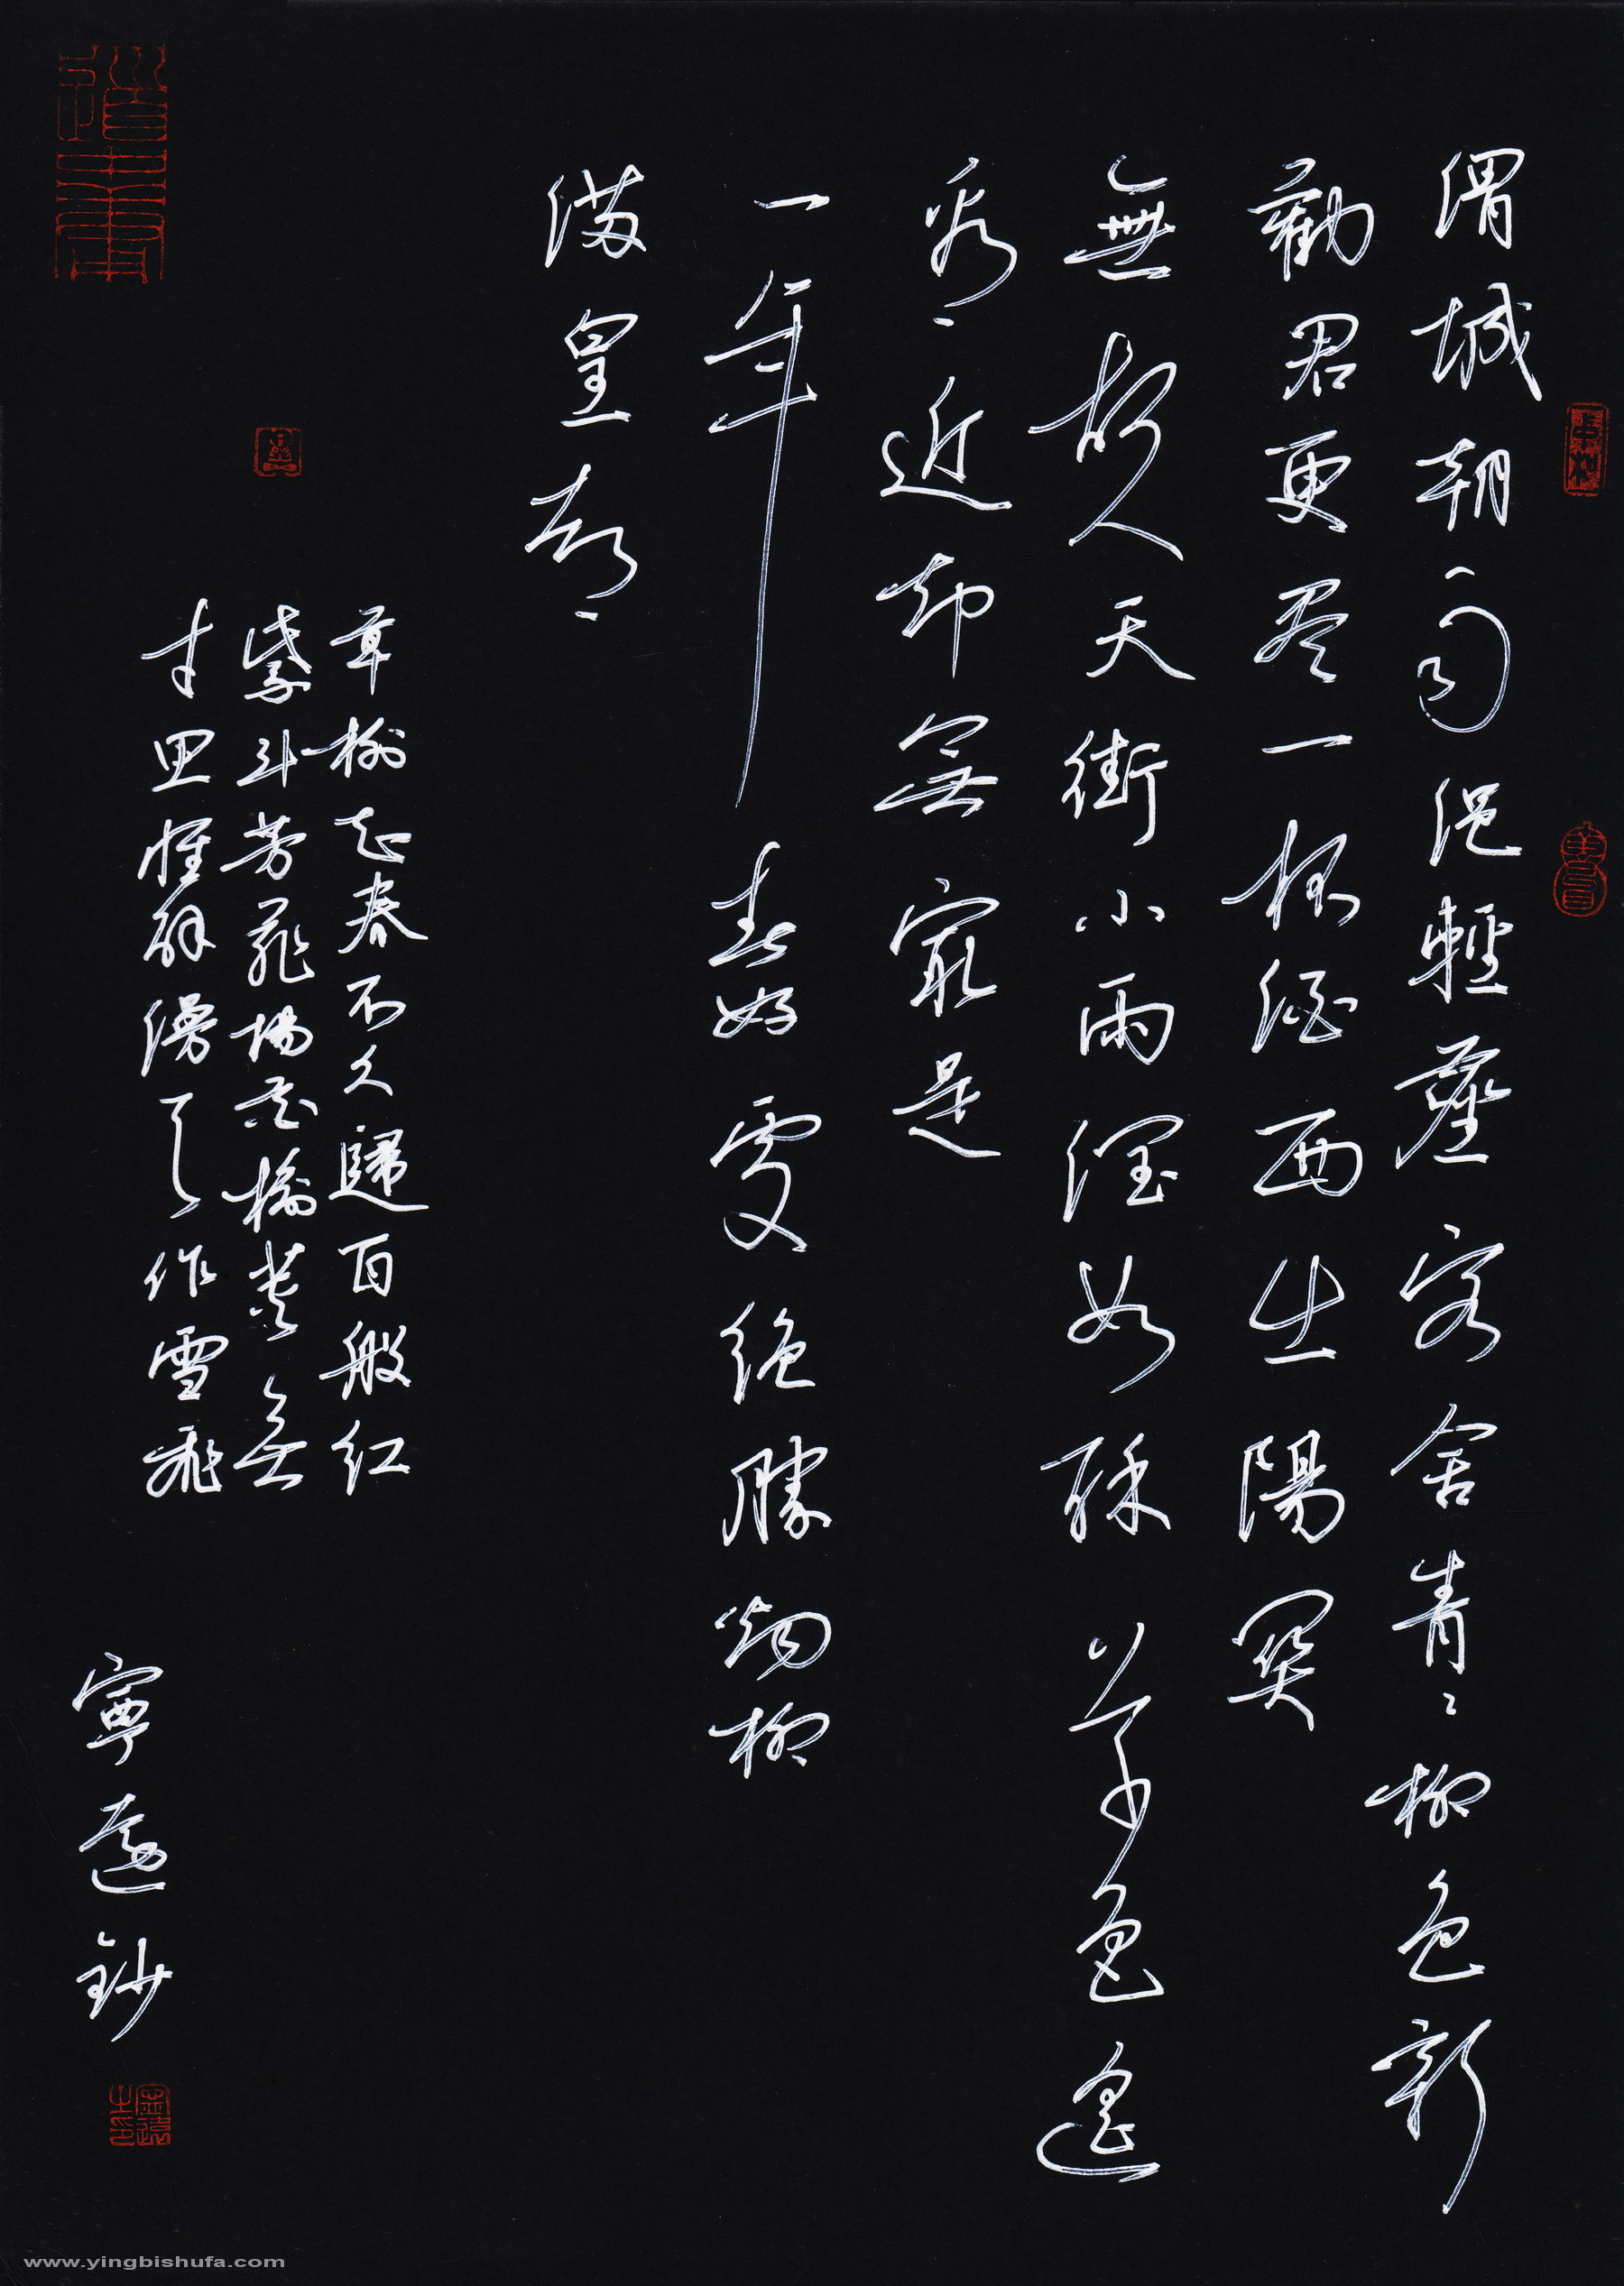 渭城朝雨浥輕塵客舍青〻柳色新
勸君更尽一杯酒西出陽関
無故人天街小雨潤如酥草色遥
看近却無最是
一年春好處絶勝烟柳
滿皇都
草樹知春不久歸百般紅
紫斗芳菲楊花榆荚無
才思惟解漫天作雪飛
寧遠鈔
www.yingbishufa.com